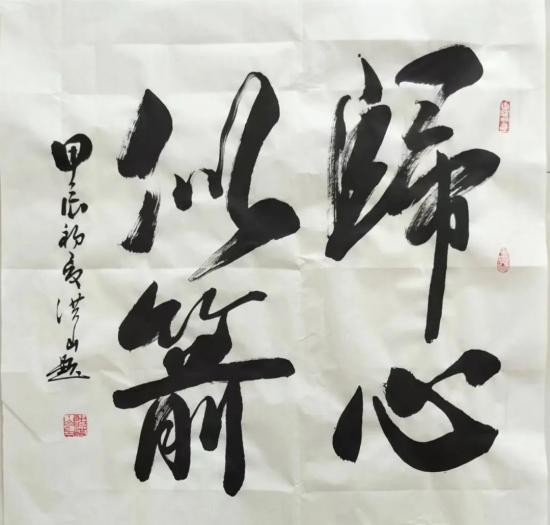 歸心
似箭
甲辰初夏洪山題